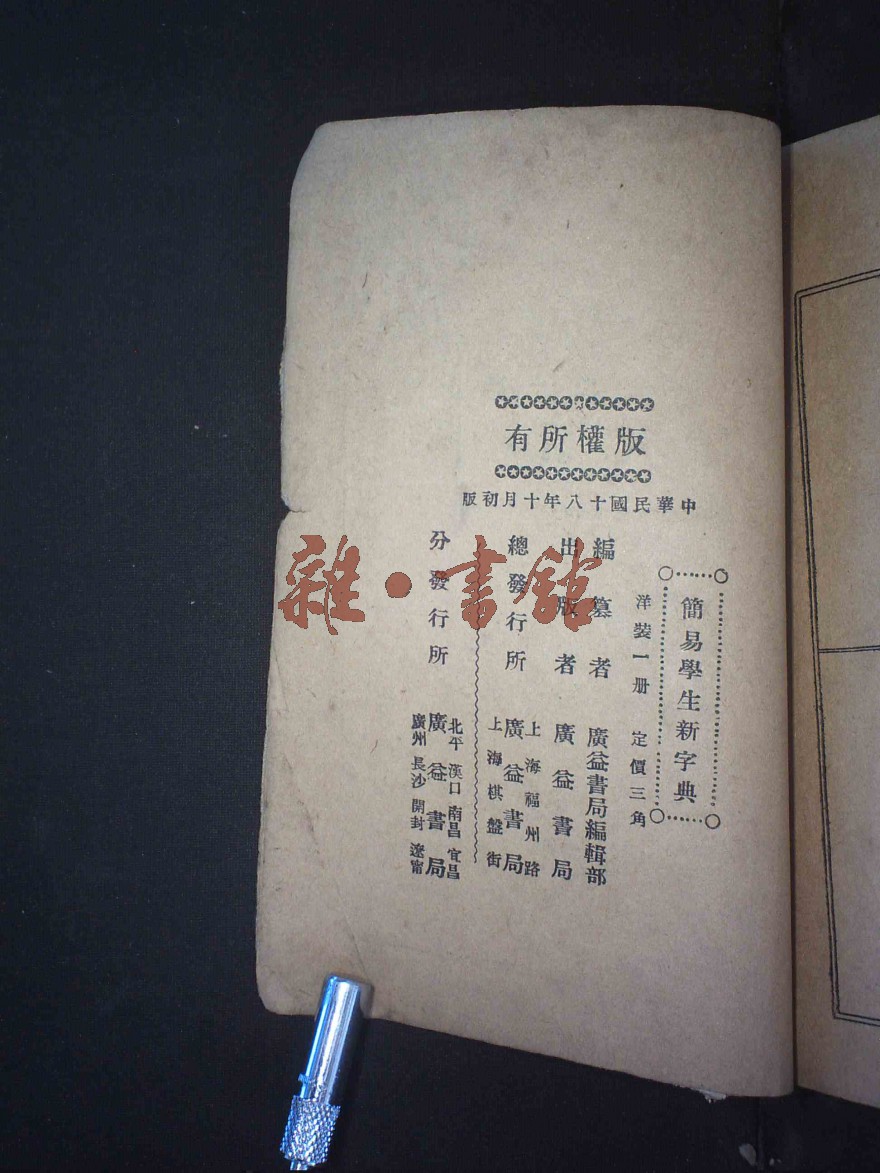 版權所有
中華民國十八年十月初版
簡易學生新字典
洋裝一册 定價三角
編纂者 廣益書局編輯部
出版者 廣益書局
總發行所 上海福州路 廣益書局 上海棋盤街
分發行所 北平 漢口 南昌 宜昌 廣益書局 廣州 長沙 開封 遼甯
雜·書館